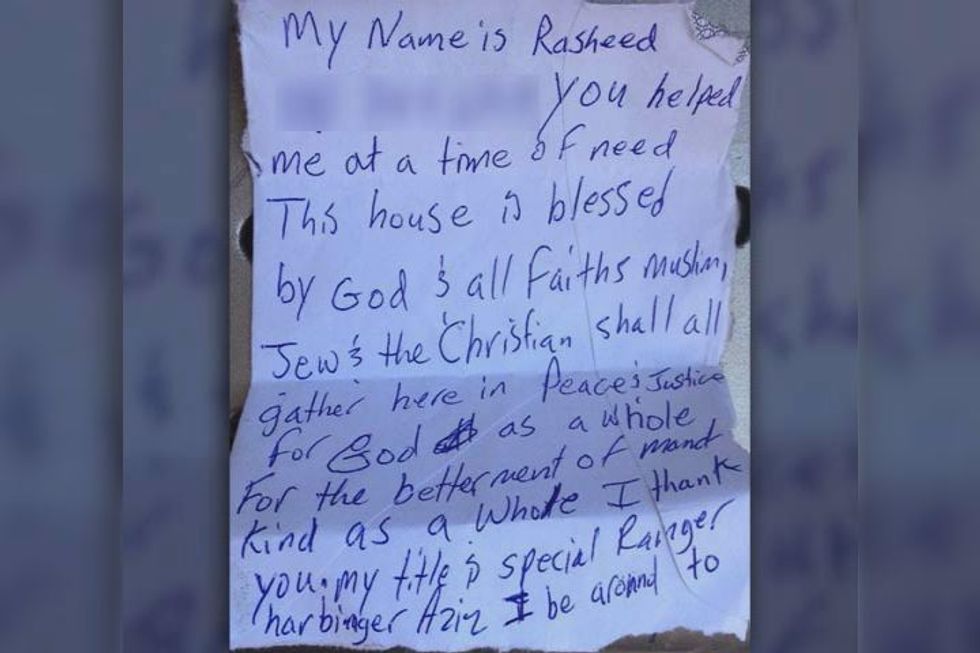 My Name is Rasheed
You helped
me at a time of need
This house is blessed
by God & all Faiths muslim,
Jew & the Christian shall all
gather here in Peace & Justice
for God as a whole
For the betterment of mand
kind as a Whole I thank
you. my title is special Ranger
harbinger Aziz I be around to